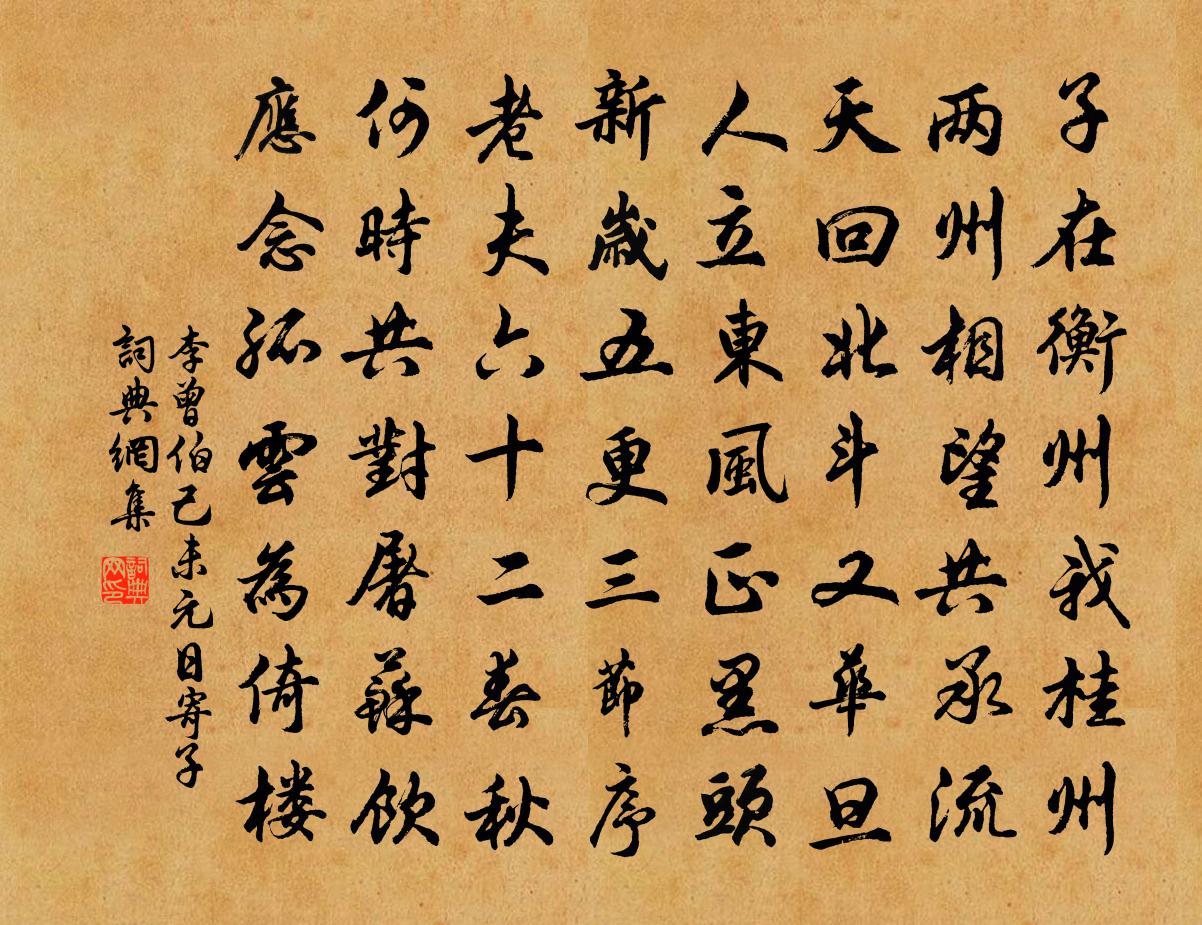 子在衡州我桂州
两州相望共承流
天回北斗又華旦
人立東風正黑頭
新歲五更三節序
老夫六十二春秋
何時共對屠蘇飲
應念孤雲為倚楼
李曾伯己未元日寄子
詞典網集
詞典網印